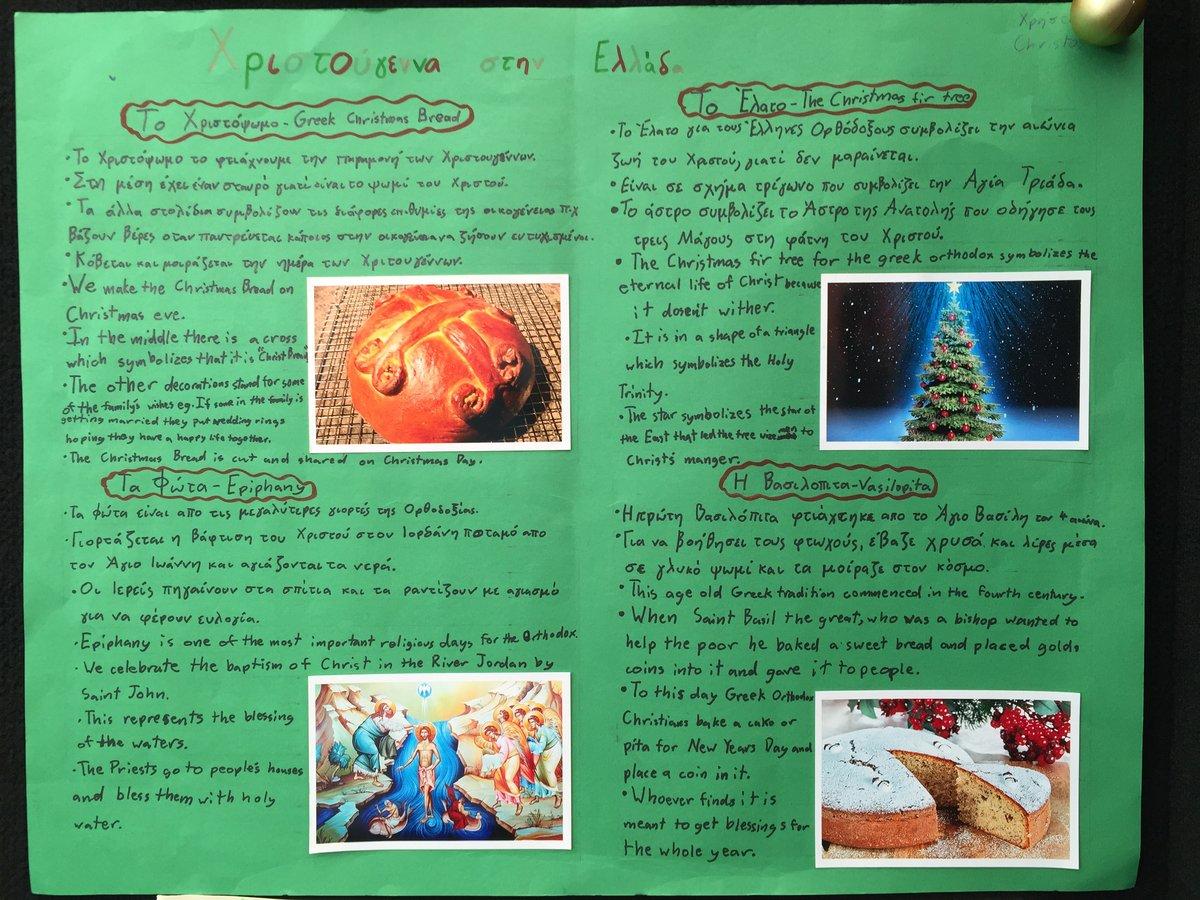 Χριστούγεννα στην Ελλάδα
Το Χριστόψωμο - Greek Christmas Bread
· Το Χριστόψωμο το φτιάχνουμε την παραμονή των Χριστουγέννων.
· Στη μέση έχει έναν σταυρό γιατί είναι το ψωμί του Χριστού.
· Τα άλλα στολίδια συμβολίζουν τις διάφορες επιθυμίες της οικογένειας π.χ
βάζουν βέρες οταν παντρεύεται κάποιος στην
· Κόβεται και μοιράζεται την ημέρα των Χριτουγέννων.
· We make the Christmas Bread on
Christmas eve.
· In the middle there is a cross
which symbolizes that it is "Christ Bread
· The other decorations stand for some
of the family's wishes eg. If some in the family is
getting married they put wedding rings
hoping they have a happy life together.
· The Christmas Bread is cut and shared on Christmas Day.
Τα Φώτα - Epiphany
· Τα φώτα είναι απο τις μεγαλύτερες γιορτές της Ορθοδοξίας.
· Γιορτάζεται η βάφτιση του Χριστού στον Ιορδάνη ποταμό απο
τον Άγιο Ιωάννη και αγιάζονται τα νερά.
· Οι Ιερείς πηγαίνουν στα σπίτια και τα ραντίζουν με αγιασμό
για να φέρουν ευλογία.
· Epiphany is one of the most important religious days for the Orthodox.
· We celebrate the baptism of Christ in the River Jordan by
Saint John.
· This represents the blessing
of the waters.
· The Priests go to people's houses
and bless them with holy
water.
Το Έλατο - The Christmas fir tree
· Το Έλατο για τους Έλληνες Ορθόδοξους συμβολίζει την αιώνια
ζωή του Χριστού, γιατί δεν μαραίνεται.
· Είναι σε σχήμα τρίγωνο που συμβολίζει την Αγία Τριάδα.
· Το άστρο συμβολίζει το Άστρο της Ανατολής που οδήγησε τους
τρεις Μάγους στη φάτνη του Χριστού.
· The Christmas fir tree for the greek orthodox symbolizes the
eternal life of Christ because
it dosent wither.
· It is in a shape of a triangle
which symbolizes the Holy
Trinity.
· The star symbolizes the star of
the East that led the free to
Christ's manger.
Η Βασιλοπιτα - Vasilopita
· Η πρώτη Βασιλόπιτα φτιάχτηκε απο το Άγιο Βασίλη τον 4 αιώνα.
· Για να βοήθησει τους φτωχούς, έβαζε χρυσά και λίρες μέσα
σε γλυκό ψωμί και τα μοίραζε στον κόσμο.
· This age old Greek tradition commenced in the fourth century.
· When Saint Basil the great, who was a bishop wanted to
help the poor he baked a sweet bread and placed golds
coins into it and gave it to people.
· To this day Greek Orthodox
Christians bake a cake or
pita for New Years Day and
place a coin in it.
· Whoever finds it is
meant to get blessings for
the whole year.